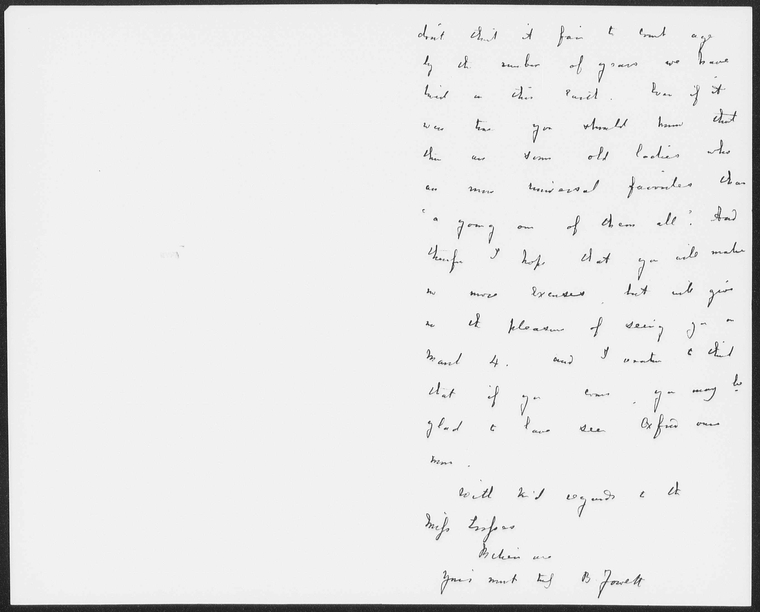 don't think it fair to count age
by the number of years we have
lived on this Earth. Even if it
was true you should know that
there are some old ladies who
are more universal favorites than
"a young one of them all". And
therefore I hope that you will make
no more excuses but will give
me the pleasure of seeing you on
March 4. and I venture to think
that if you come, you may be
glad to have seen Oxford once
more.
With kind regards to the
Miss
Believe me
Yours most truly B Jowett